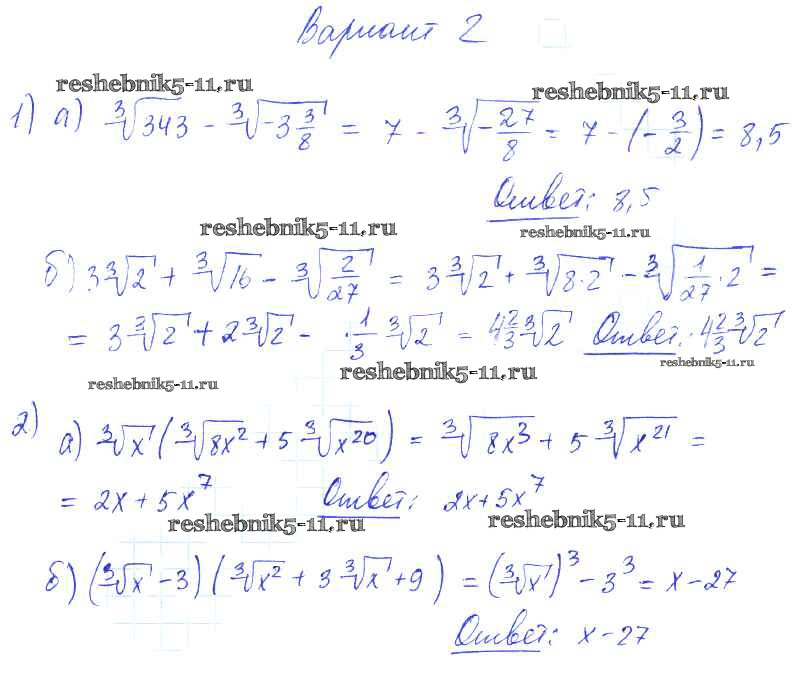 Вариант 2
reshebnik5-11.ru
reshebnik5-11.ru
1) а) ∛343 - ∛(-3 3/8) = 7 - ∛(-27/8) = 7 - (-3/2) = 8,5
Ответ: 8,5
reshebnik5-11.ru
reshebnik5-11.ru
б) 3∛2 + ∛16 - ∛(2/27) = 3∛2 + ∛(8·2) - ∛(1/27 · 2) =
= 3∛2 + 2∛2 - · 1/3 ∛2 = 4 2/3 ∛2 Ответ: 4 2/3 ∛2
reshebnik5-11.ru
reshebnik5-11.ru
reshebnik5-11.ru
2) а) ∛x (∛(8x²) + 5∛(x²⁰)) = ∛(8x³) + 5∛(x²¹) =
= 2x + 5x⁷ Ответ: 2x + 5x⁷
reshebnik5-11.ru
reshebnik5-11.ru
б) (∛x - 3) (∛(x²) + 3∛x + 9) = (∛x)³ - 3³ = x - 27
Ответ: x - 27